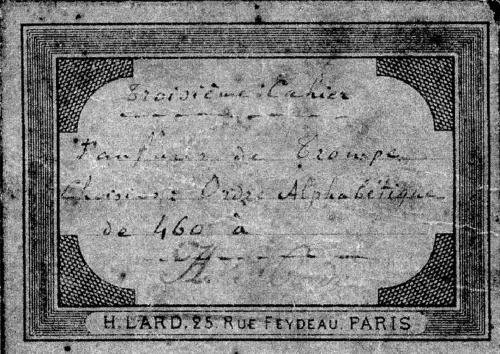 Troisième Cahier
Fanfares de Trompe
Ordre Alphabétique
de 460 à
H. LARD. 25 RUE FEYDEAU. PARIS